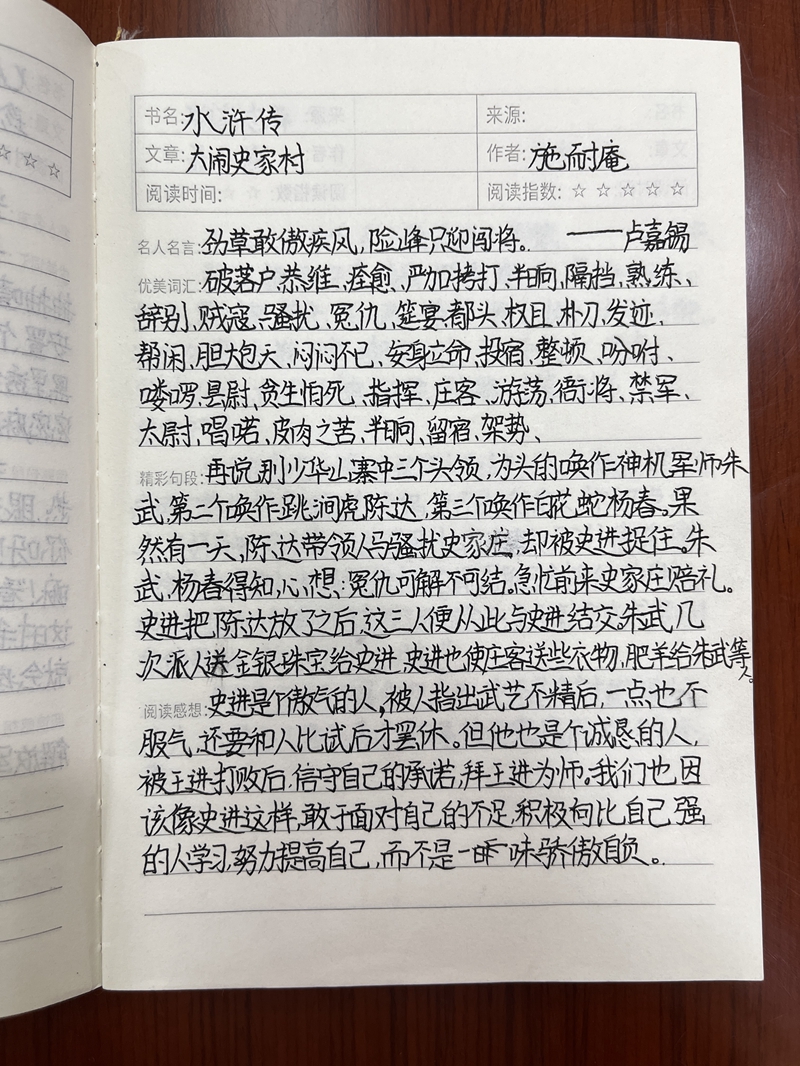 书名:水浒传 来源:
文章:大闹史家村 作者:施耐庵
阅读时间: 阅读指数:☆☆☆☆☆
名人名言:劲草敢傲疾风,险峰只迎闯将。——卢嘉锡
优美词汇:破落户、恭维、痊愈、严加拷打、半晌、隔挡、熟练、
辞别、贼寇、骚扰、冤仇、筵宴、都头、权且、朴刀、发迹、
帮闲、胆大包天、闷闷不已、安身立命、投宿、整顿、吩咐、
喽啰、县尉、贪生怕死、指挥、庄客、游荡、衙将、禁军、
太尉、唱喏、皮肉之苦、半晌、留宿、架势、
精彩句段:再说别少华山寨中三个头领,为头的唤作神机军师朱
武,第二个唤作跳涧虎陈达,第三个唤作白花蛇杨春。果
然有一天,陈达带领人马骚扰史家庄,却被史进捉住。朱
武,杨春得知,心想:冤仇可解不可结。急忙前来史家庄赔礼。
史进把陈达放了之后,这三人便从此与史进结交。朱武几
次派人送金银珠宝给史进,史进也使庄客送些衣物,肥羊给朱武等
人。
阅读感想:史进是个傲气的人,被人指出武艺不精后,一点也不
服气,还要和人比试后才罢休。但他也是个诚恳的人,
被王进打败后,信守自己的承诺,拜王进为师。我们也因
该像史进这样,敢于面对自己的不足,积极向比自己强
的人学习,努力提高自己,而不是一味骄傲自负。